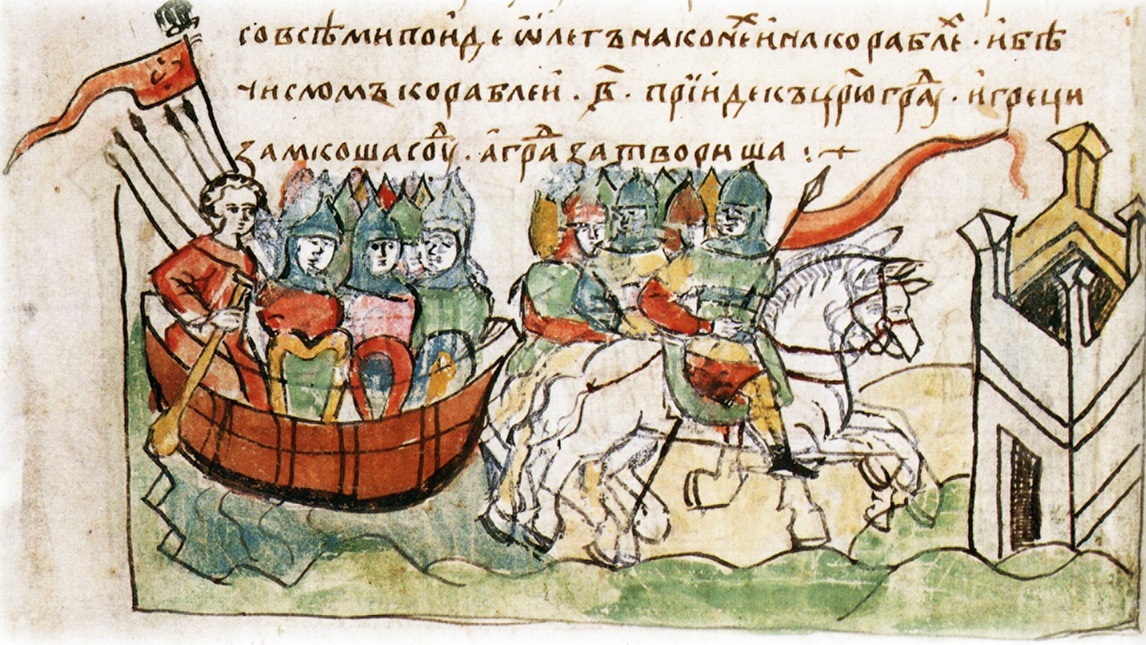 со всѣми поиде ѡлегъ на коне҇х и на корабле҇х · и бѣ
числомъ кораблеи · в҃ · прїиде къ цр҃ю гра҇ду · и греци
замкоша соу҇д · а гра҇д затвориша :·